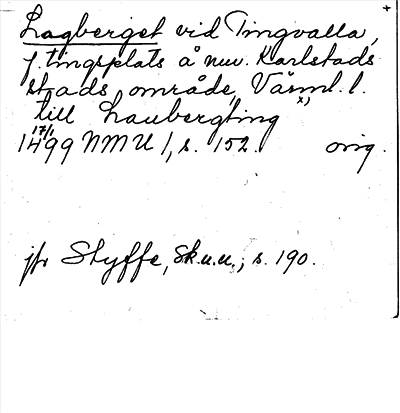 Lagberget vid Tingvalla,
f. tingsplats å nuv. Karlstads
stads område, Värml. l.
till Laubergting x)
17/1
1499 NMU 1, s. 152. orig.
jfr Styffe, Sk.u.u., s. 190.